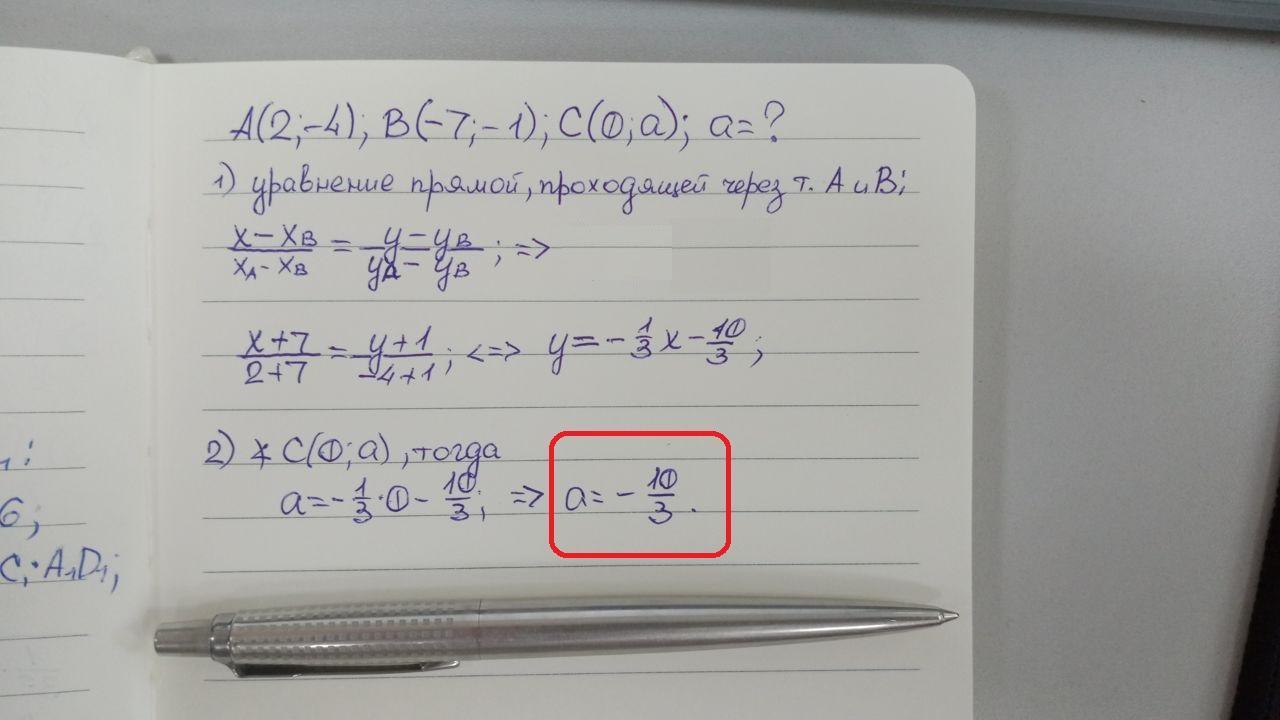 A(2;-4); B(-7;-1); C(0;a); a=?
1) уравнение прямой, проходящей через т. A и B;
(x - x_B)/(x_A - x_B) = (y - y_B)/(y_A - y_B); =>
(x+7)/(2+7) = (y+1)/(-4+1); <=> y = -1/3 x - 10/3;
2) C(0;a), тогда
a = -1/3 · 0 - 10/3; => a = - 10/3.
1:
6;
C, · A₁D₁;